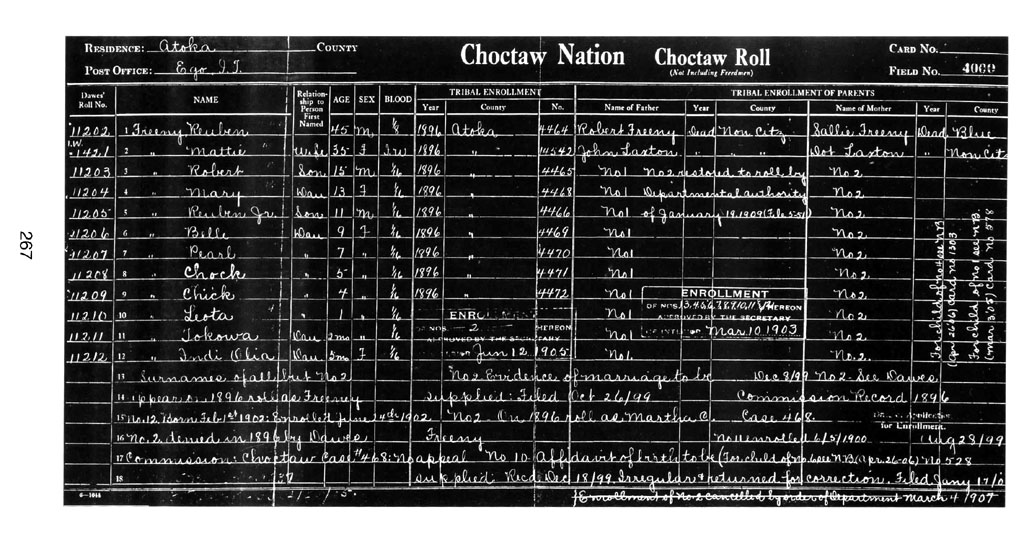 RESIDENCE: Atoka COUNTY Choctaw Nation Choctaw Roll CARD NO.
POST OFFICE: Ego I.T. (Not Including Freedmen) FIELD NO. 4060
Dawes' Roll No. NAME Relationship to Person First Named AGE SEX BLOOD TRIBAL ENROLLMENT TRIBAL ENROLLMENT OF PARENTS
Year County No. Name of Father Year County Name of Mother Year County
11202 1 Freeny Reuben 45 M 1/8 1896 Atoka 4464 Robert Freeny Dead Non Citz Sallie Freeny Dead Blue
I.W. 1421 2 " Mattie Wife 35 F I.W 1896 " 14542 John Laxton " " Dot Laxton " Non Citz
11203 3 " Robert Son 15 M 1/16 1896 " 4465 No1 No2 restored to roll by No2
11204 4 " Mary Dau 13 F 1/16 1896 " 4468 No1 Departmental authority No2
11205 5 " Reuben Jr. Son 11 M 1/16 1896 " 4466 No1 of January 19, 1909 (File 5-51) No2
11206 6 " Bille Dau 9 F 1/16 1896 " 4469 No1 No2
11207 7 " Pearl " 7 " 1/16 1896 " 4470 No1 No2
11208 8 " Chock " 5 " 1/16 1896 " 4471 No1 No2
11209 9 " Chick " 4 " 1/16 1896 " 4472 No1 No2
11210 10 " Leota " 1 " 1/16 No1 No2
11211 11 " Tokowa Dau 2mo " 1/16 No1 No2
11212 12 " Indi Olia Dau 5mo F 1/16 No1. No.2.
ENROLLMENT
OF NOS. 2 HEREON
APPROVED BY THE SECRETARY
Jun 12 1905
ENROLLMENT
OF NOS. 1,3,4,5,6,7,8,9,10,11 HEREON
APPROVED BY THE SECRETARY
OF INTERIOR Mar 10 1903
For child of No4 see NB (Apr 26-06) Card No 1303
For child of No1 see NB (Mar 3-05) Card No 578
13 Surnames of all but No2 No2 Evidence of marriage to be Dec 8/99 No2- See Dawes
14 appear on 1896 roll as Freeney supplied: Filed Oct 26/99 Commission Record 1896
15 No.12 Born Feb 1st 1902: Enrolled June 24th 1902. No2- On 1896 roll as Martha C. Case 468.
for Enrollment.
16 No. 2 denied in 1896 by Dawes Freeny No11 enrolled 6/5/1900 Aug 28/99
17 Commission: Choctaw Case #468: No appeal No. 10 Affidavit of birth to be (For child of No.6 see NB (Apr. 26-06) No 528
18 supplied: Recd Dec 18/99. Irregular & returned for correction. Filed Jany 17/0
6-1048 Enrollment of No.2 cancelled by order of Department March 4 1907
267